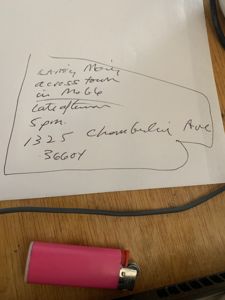 across town
in Mobile
Late afternoon
5 pm.
1325 Chamberlin Ave
36604